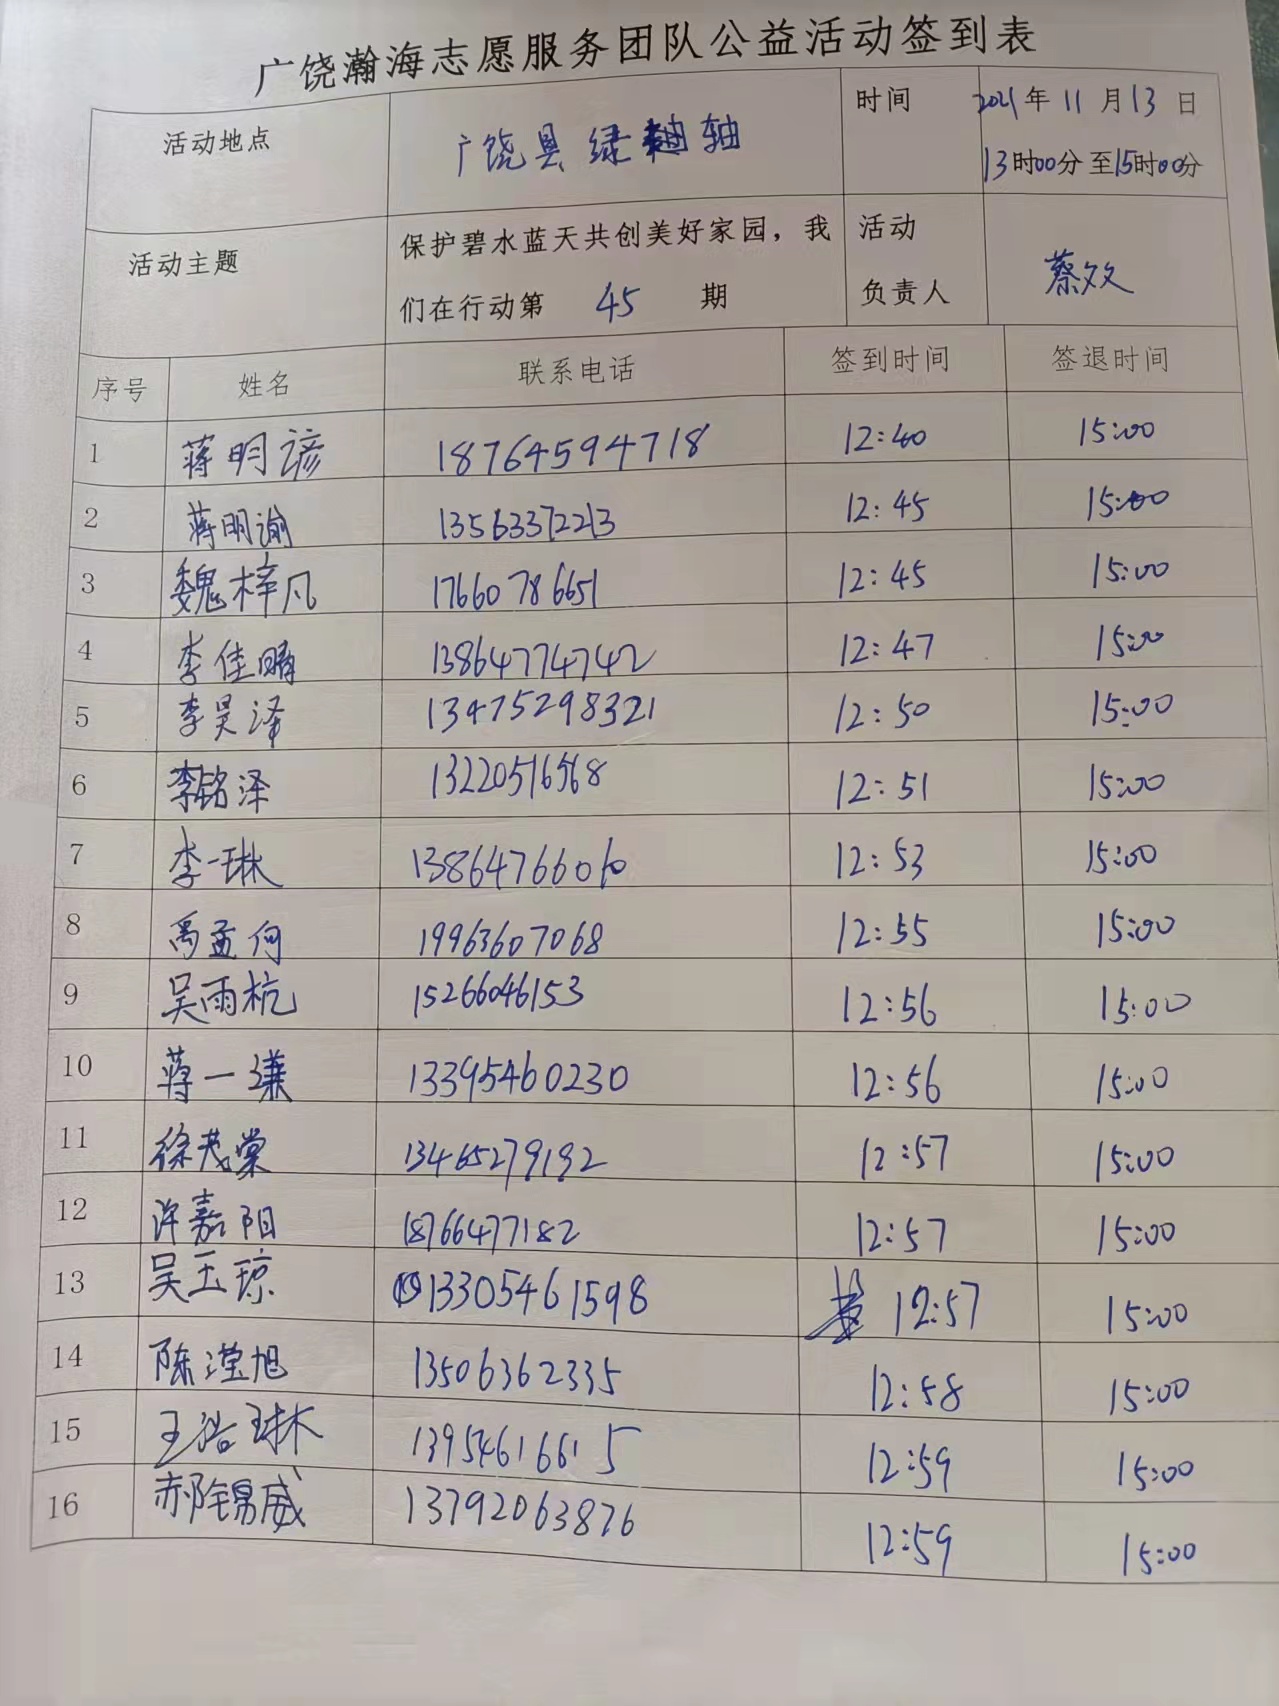 广饶瀚海志愿服务团队公益活动签到表
活动地点 广饶县绿轴 时间 2021年11月13日
13时00分至15时00分
活动主题 保护碧水蓝天共创美好家园，我 活动
们在行动第 45 期 负责人 蔡效
序号 姓名 联系电话 签到时间 签退时间
1 蒋明谚 18764594718 12:40 15:00
2 蒋明谕 13563372213 12:45 15:00
3 魏梓凡 17660786651 12:45 15:00
4 李佳晴 13864774742 12:47 15:00
5 李昊泽 13475298321 12:50 15:00
6 李铭泽 13220516568 12:51 15:00
7 李一琳 13864766010 12:53 15:00
8 禹孟何 19963607068 12:55 15:00
9 吴雨杭 15266046153 12:56 15:00
10 蒋一 13395460230 12:56 15:00
11 徐茂棠 13465279192 12:57 15:00
12 许嘉阳 18766477182 12:57 15:00
13 吴玉琼 13305461598 12:57 15:00
14 陈滢旭 13506362335 12:58 15:00
15 王浩琳 13954616615 12:59 15:00
16 郝锦威 13792063876 12:59 15:00